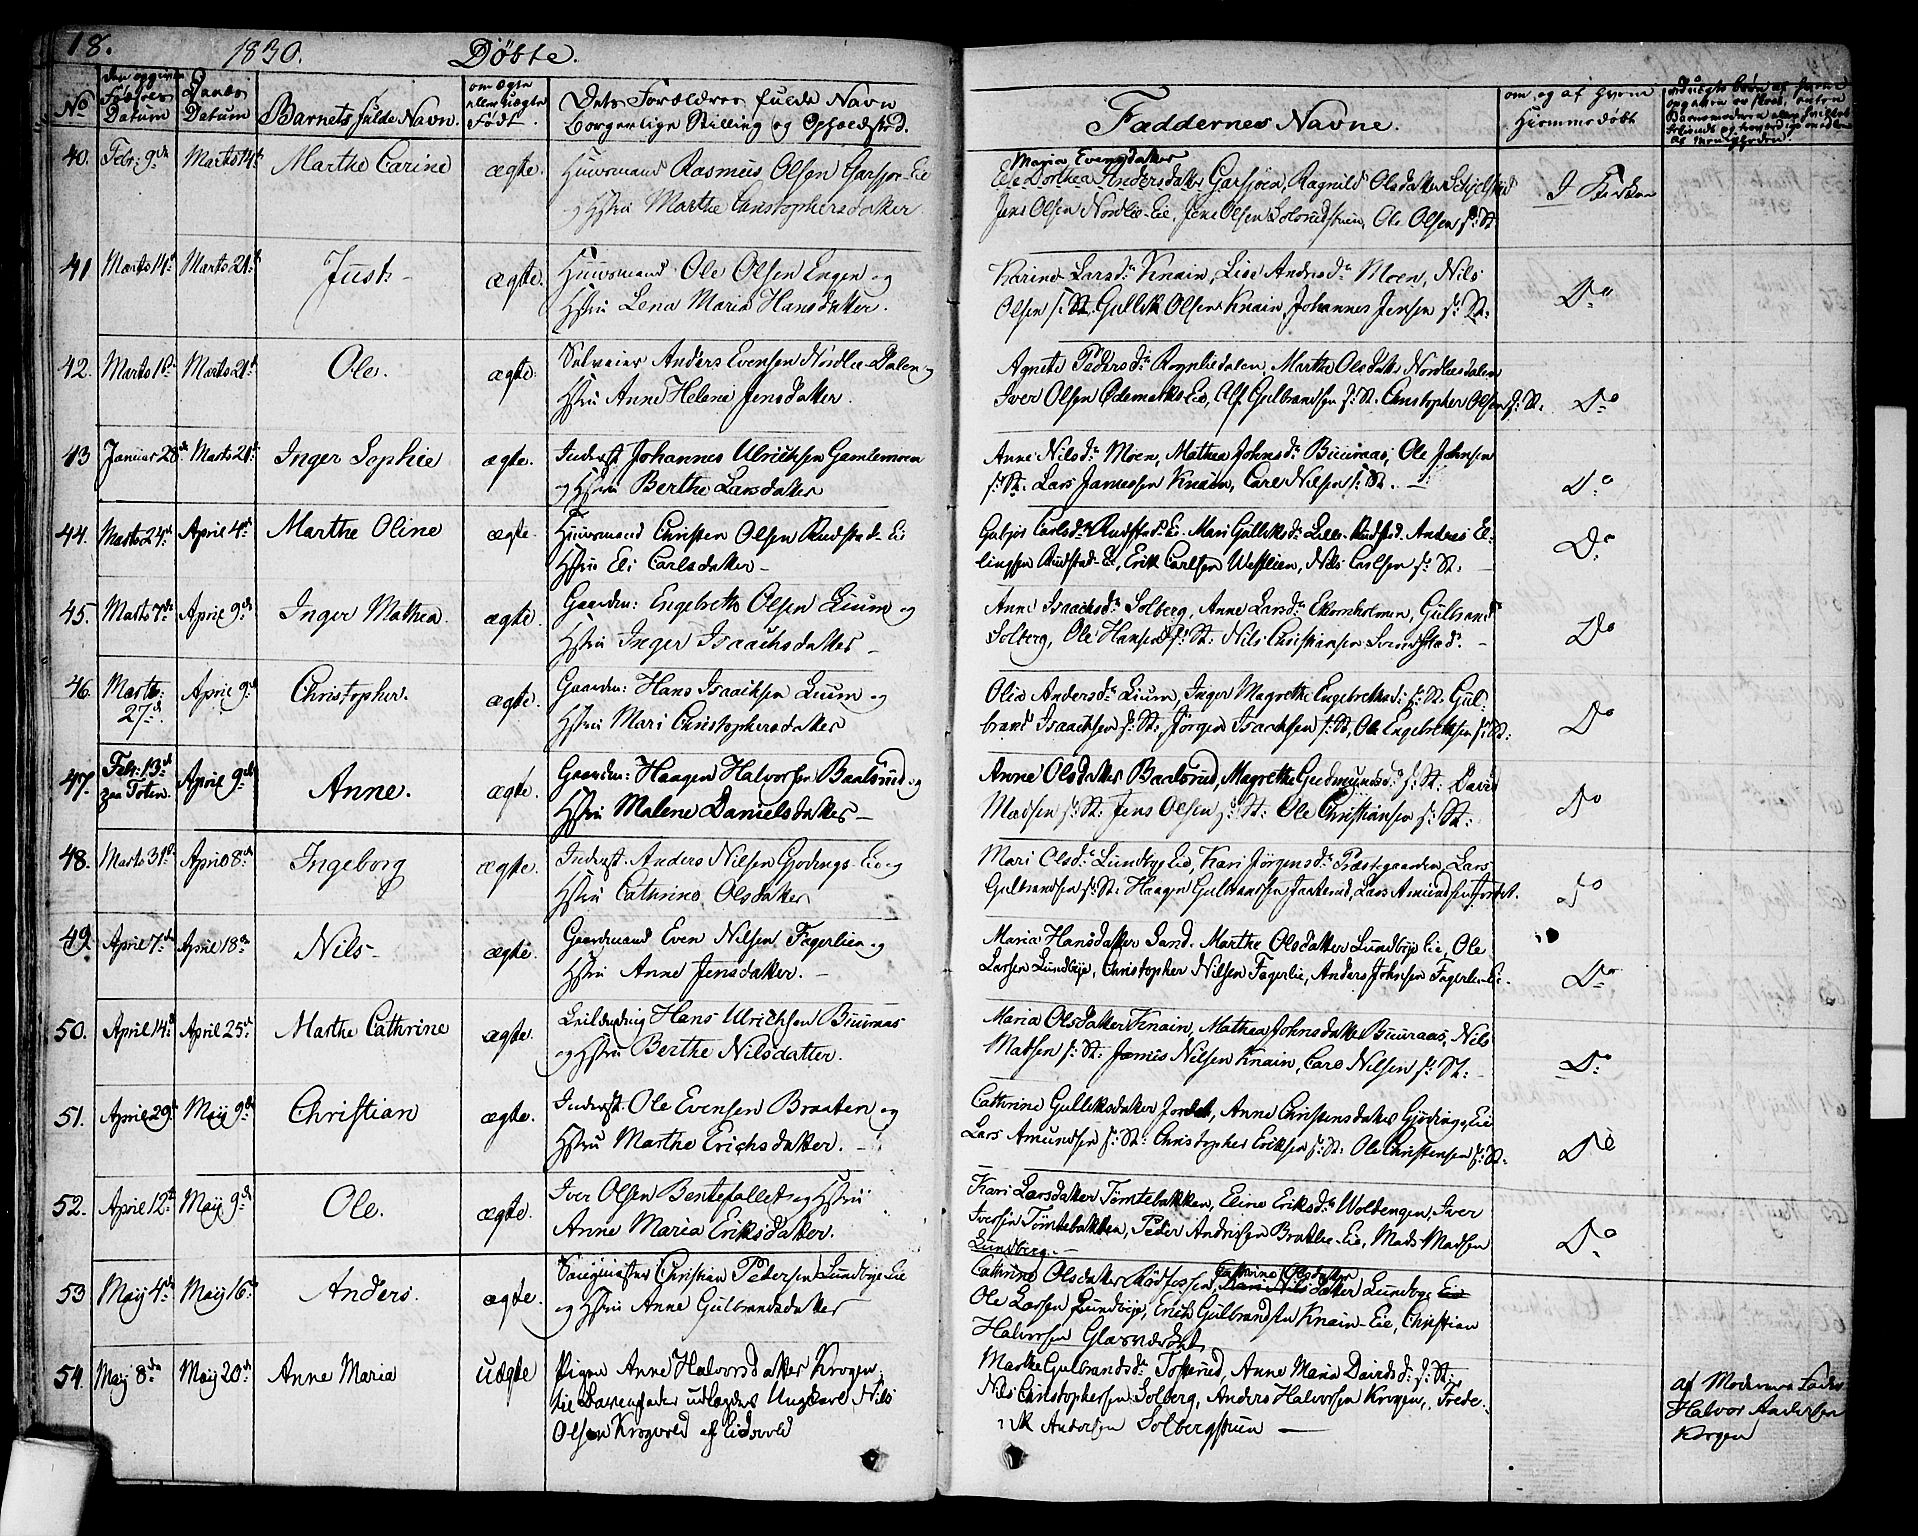 18. 1830. Døbte.
No
den opgivne Fødsels Datum
Daabs Datum
Barnets fulde Navn
om ægte eller uægte Født.
Dets Forældres fulde Navn
borgerlige Stilling og Opholdsted.
Faddernes Navne.
om og af hvem
Hjemmedøbt
40. Febr: 9de Marts 14de Marthe Carine ægte. Huusmand Rasmus Olsen Garsjøe-Eie
og Hstru Marthe Christophersdatter
Maria Evensdatter
Dorthea Andersdatter Garsjøen, Ragnild Olsdatter
Jens Olsen Nordlie-Eie, Jens Olsen Ole Olsen s: St:
I Kirken
41 Marts 14de Marts 21de Just- ægte. Huusmand Ole Olsen Engen og
Hstru Lena Maria Hansdatter.
Karine Larsdr Knain, Lise Andersdr Moen, Nils
Olsen s: St: Gullik Olsen Knain, Johannes Jensen s: St:
Do
42. Marts Marts 21de Ole. ægte. Selveier Anders Evensen Nordlie-Dalen og
Hstru Anne Helene Jensdatter.
Agnete Pedersdr Rognliedalen, Marthe Olsdatter Nordliedalen
Iver Olsen Ødemarks Eie, Alf Gulbrandsen s: St: Christopher Olsen s: St.
Do
43 Januar 28de Marts 21de Inger Sophie ægte. Inderst Johannes Ulrichsen Gamlemoen
og Hstru Berthe Larsdatter
Anne Nilsdr Moen, Mathea Johnsdr Buuraas, Ole Johnsen
s: St: Lars Jamessen Knain, Carl Nilsen s: St.
Do
44. Marts 24de April 4de Marthe Oline ægte. Huusmand Christen Olsen Rudstad-Ei
Hstru Eli Carlsdatter-
Carlsdr Rudstad-Ei. Mari Gulliksdr Lille-Rudstad. Anders El-
lingsen Rudstad-Ei, Erik Carlsen Westlien, Nils Carlsen s: St:
Do
45. Marts 7de April 9de Inger Mathea. ægte. Gaardm: Engebreth Olsen Lium og
Hstru Inger Isaachsdatter -
Anne Isaachsdr Solberg, Anne Larsdr Ekornholmen, Gulbrand
Solberg, Ole Hansen s: St: Nils Christiansen
Do
46. Marts: 27de. April 9de Christopher. ægte. Gaardm: Hans Isaachsen Lium og
Hstru Mari Christophersdatter
Olia Andersdr Lium, Inger Magrethe Engebrethsdr s: St. Gul-
brand Isaachsen s: St: Jørgen Isachsen s: St, Ole Engebrethsen s: St:
Do
47. Febr: 13de paa Toten. April 9de Anne. ægte. Gaardm: Haagen Halvorsen Baalsrud og
Hstru Malene Danielsdatter-
Anne Olsdatter Baalsrud, Magrethe Gudmundsdr s: St: David
Madsen s: St: Jens Olsen s: St: Ole Christiansen s: St:
Do
48. Marts 31de April 8de Ingeborg ægte. Inderst. Anders Nilsen Gjødings-Eie og
Hstru Cathrine Olsdatter
Mari Olsdr Lundby Eie, Kari Jørgensdr Præstegaarden, Lars
Gulbrandsen s: St: Haagen Gulbrandsen Lars Amundsen Jordet.
Do
49. April 7de April 18de Nils- ægte. Gaardmand Even Nilsen Fagerlien og
Hstru Anne Jensdatter. -
Maria Hansdatter Sand. Marthe Olsdatter Lundbye Eie, Ole
Larsen Lundbye, Christopher Nilsen Fagerlie, Anders Johnsen Fagerlie-Eie.
Do
50. April 14de April 25de Marthe Cathrine ægte. Hans Ulrichsen Buuraas
og Hstru Berthe Nilsdatter.
Maria Olsdatter Knain, Mathea Johnsdatter Buuraas, Nils
Madsen s: St: James Nilsen Knain, Carl Nilsen s: St:
Do
51. April 29de Maij 9de Christian ægte. Inderst. Ole Evensen Braaten og
Hstru Marthe Erichsdatter. -
Cathrine Gulliksdatter Jordet, Anne Christensdatter Gjøding Eie
Lars Amundsen s: St: Christopher Eriksen s: St: Ole Christensen s: St:
Do
52. April 12te Maij 9de Ole. ægte. Iver Olsen Bentefallet og Hstru
Anne Maria Eriksdatter.
Kari Larsdatter Tømtebakken, Eline Eriksdr Woldengen, Iver
Iversen Tømtebakken, Peder Andersen Bratlie-Eie, Mads Madsen
Lundberg. -
Do
53 Maij 4de Maij 16de Anders. ægte. Saugmester Christian Petersen Lundbye-Eie
og Hstru Anne Gulbrandsdatter
Cathrine Olsdatter Rødfossen, Cathrine Olsdatter Lundbye Eie
Ole Larsen Lundbye, Erich Gulbrandsen Knain-Eie, Christian
Halvorsen Glasværket
54. Maij 8de Maij 20de Anne Maria uægte Pigen Anne Halvorsdatter Krogen,
til Barnefader udlægdes Ungkarl Nils
Olsen Krogvold af Eidsvold
Marthe Gulbrandsdr Tosterud, Anne Maria Davidsdr s: St:
Nils Christophersen Solberg, Anders Halvorsen Krogen, Frede-
rik Andersen Solbergstuen -
af Moderens Fader
Halvor Andersen
Krogen